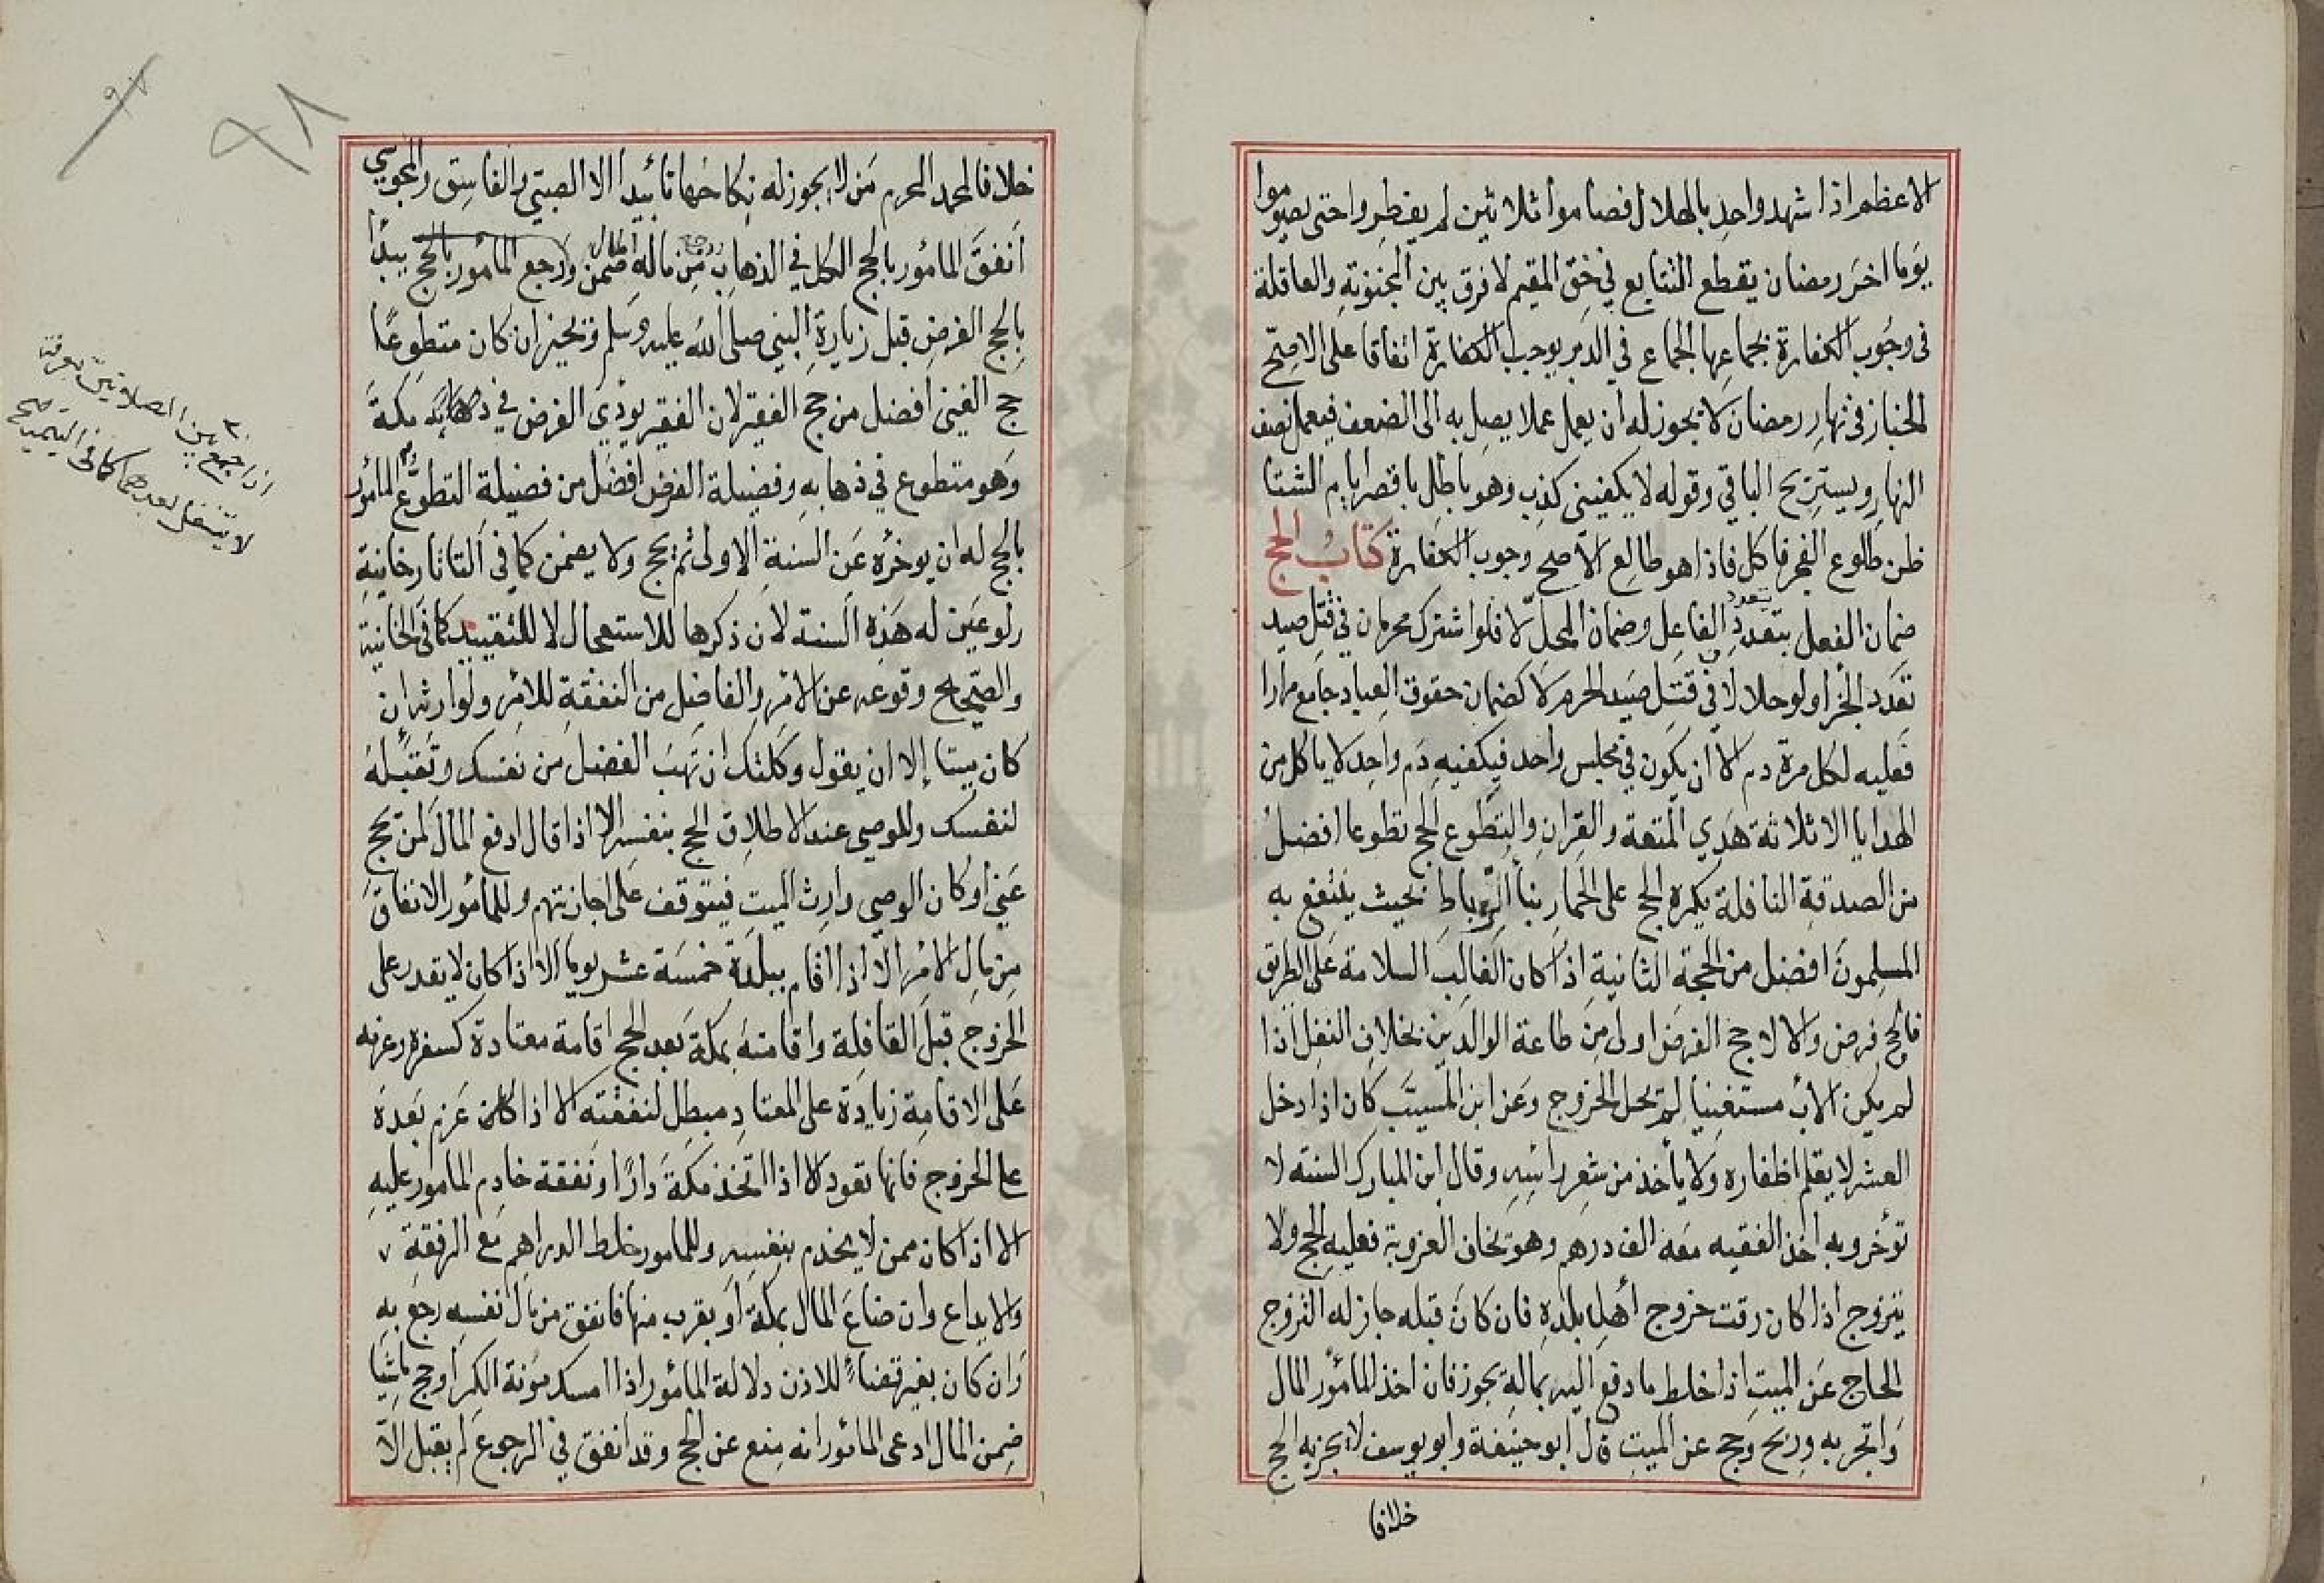 الاعظم اذا شهد واحد بالهلال فصاموا ثلاثين لم يفطروا حتى يصوموا
يوما اخر رمضان يقطع التتابع في حق المقيم لا فرق بين المجنونة والعاقلة
في وجوب الكفارة بجماعها الجماع في الدبر يوجب الكفارة اتفاقا على الاصح
الخباز في نهار رمضان لا يجوز له ان يعمل عملا يصل به الى الضعف فيعمل نصف
النهار ويستريح الباقي وقوله لا يكفيني كذب وهو باطل باقصر ايام الشتا
ظن طلوع الفجر فاكل فاذا هو طالع الاصح وجوب الكفارة كتاب الحج
ضمان الفعل يتعدد بتعدد الفاعل وضمان المحل لا فلو اشترك محرمان في قتل صيد
تعدد الجزا ولو حلالا في قتل صيد الحرم لا كضمان حقوق العباد جامع مرارا
فعليه لكل مرة دم الا ان يكون في مجلس واحد فيكفيه دم واحد لا ياكل من
الهدايا الا ثلاثة هدي المتعة والقران والتطوع الحج تطوعا افضل
من الصدقة النافلة يكره الحج على الحمار بنأ الرباط بحيث ينتفع به
المسلمون افضل من الحجة الثانية اذا كان الغالب السلامة على الطريق
فالحج فرض والا لا حج الفرض اولى من طاعة الوالدين بخلاف النفل اذا
لم يكن الاب مستغنيا لم يحل الخروج وعن ابن المسيب كان اذا دخل
العشر لا يقلم اظفاره ولا يأخذ من شعر رأسه وقال ابن المبارك السنة لا
تؤخر وبه اخذ الفقيه معه الف درهم وهو يخاف العزوبة فعليه الحج ولا
يتزوج اذا كان وقت خروج أهل بلده فان كان قبله جاز له التزوج
الحاج عن الميت اذا خلط ما دفع اليه بماله يجوز فان اخذ المأمور المال
واتجر به وربح وحج عن الميت قال ابو حنيفة وابو يوسف لا يجزيه الحج
خلافا
خلافا لمحمد المحرم من لا يجوز له نكاحها تأبيدا الا الصبي والفاسق والمجوسي
أنفق المأمور بالحج الكل في الذهاب من ماله ضمن المال ولا رجع المأمور بالحج يبدأ
بالحج الفرض قبل زيارة النبي صلى الله عليه وسلم وتخير ان كان متطوعا
حج الغني افضل من حج الفقير لان الفقير يؤدي الفرض في مكة
وهو متطوع في ذهابه وفضيلة الفرض افضل من فضيلة التطوع المأمور
بالحج له ان يوخره عن السنة الاولى ثم يحج ولا يضمن كما في التاتارخانية
ولو عين له هذه السنة لان ذكرها للاستعجال لا للتقييد كما في الخانية
والصحيح وقوعه عن الامر والفاضل من النفقة للامر ولوارثه ان
كان ميتا إلا ان يقول وكلتك ان تهب الفضل من نفسك وتقبله
لنفسك وللموصي عند الاطلاق الحج بنفسه الا اذا قال ادفع المال لمن يحج
عني او كان الوصي وارث الميت فيتوقف على اجازتهم وللمأمور الانفاق
من مال الامر الا اذا اقام ببلدة خمسة عشر يوما الا اذا كان لا يقدر على
الخروج قبل القافلة واقامته بمكة بعد الحج اقامة معتادة كسفره وعزمه
على الاقامة زيادة على المعتاد مبطل لنفقته الا اذا كان عزم بعده
على الخروج فانها تعود الا اذا اتخذ مكة دارا ونفقة خادم المامور عليه
الا اذا كان ممن لا يخدم بنفسه وللمامور خلط الدراهم مع الرفقة
والايداع وان ضاع المال بمكة أو بقرب منها فانفق من مال نفسه رجع به
وان كان بغير قضاء للاذن دلالة المأمور اذا امسك مؤنة الكرا وحج ماشيا
ضمن المال ادعى المأمور انه منع عن الحج وقد انفق في الرجوع لم يقبل الا
اذا جمع بين الصلاتين بعرفة
لا يتنفل بعدهما كما في اليتيمة صح
٩٨